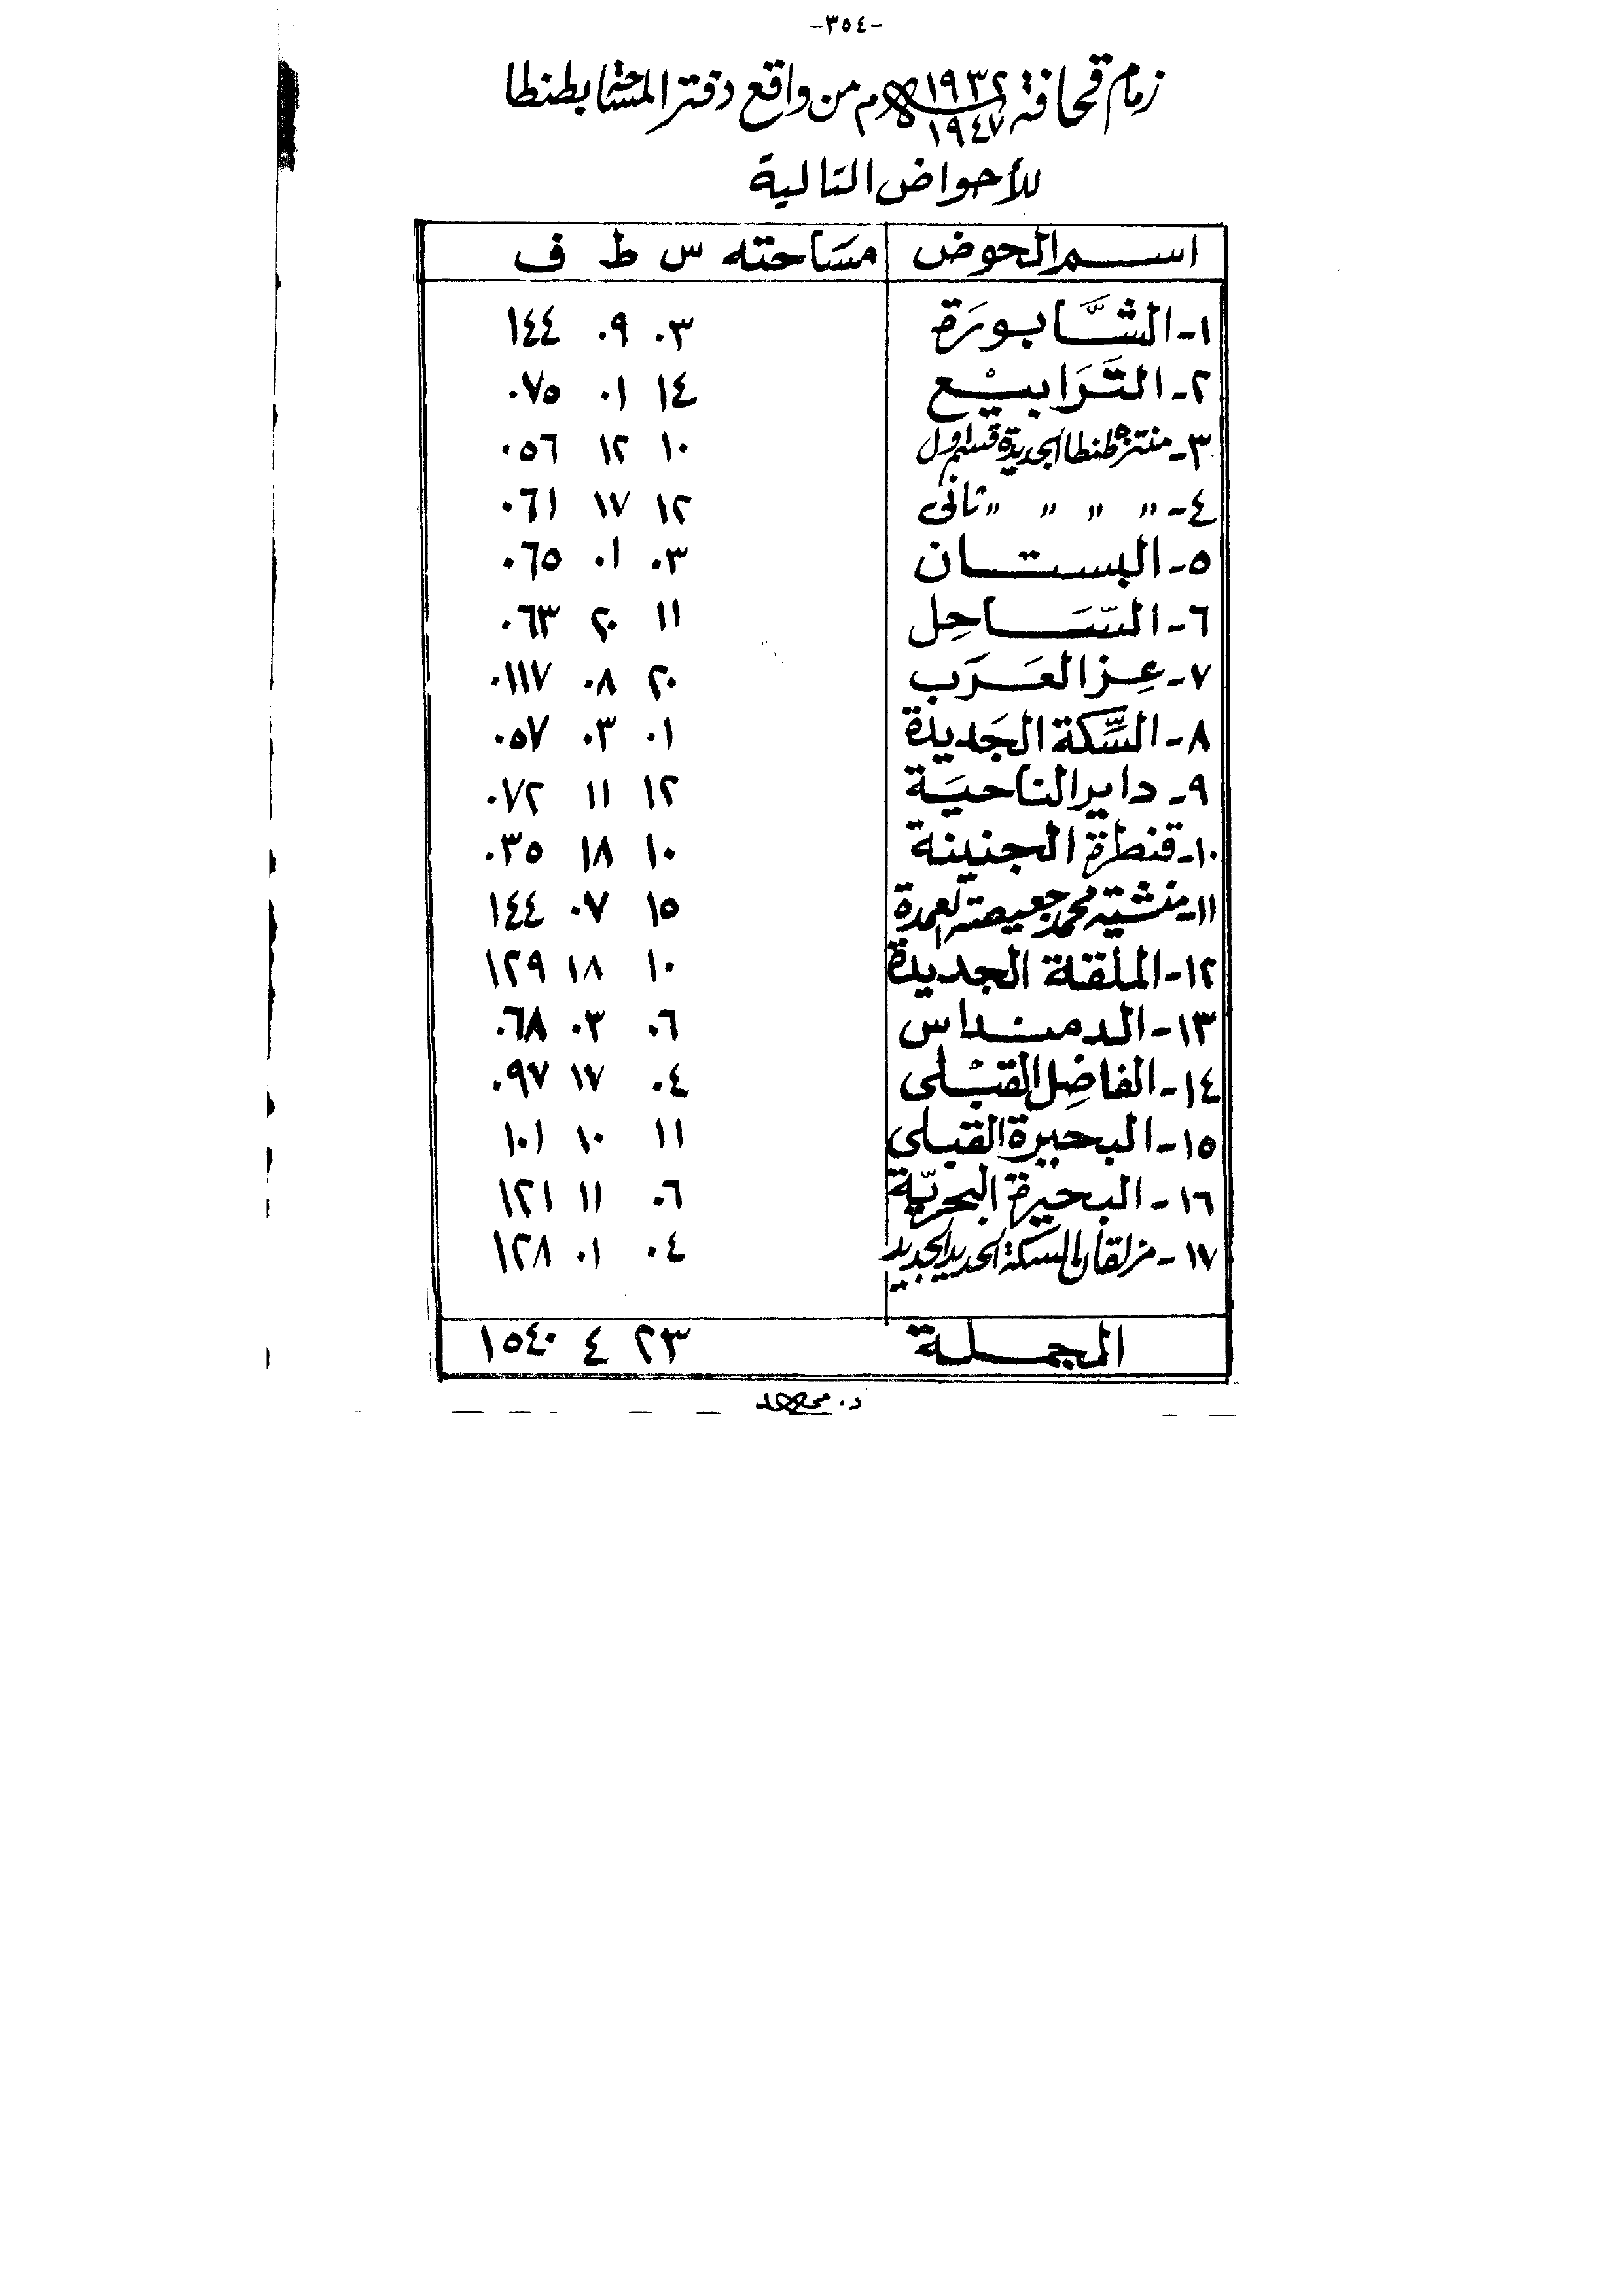 -٣٥٤-
زمام قحافة ١٩٣٢ / ١٩٤٧ م من واقع دفتر المساحة بطنطا
للأحواض التالية
اسم الحوض مساحته س ط ف
١- الشَّابورَة ٠٣ ٠٩ ١٤٤
٢- التَرَابيْع ١٤ ٠١ ٠٧٥
٣- منتزه طنطا الجديدة قسم اول ١٠ ١٢ ٠٥٦
٤- " " " " ثانى ١٢ ١٧ ٠٦١
٥- البستان ٠٣ ٠١ ٠٦٥
٦- السَّاحِل ١١ ٢٠ ٠٦٣
٧- عِز العَرَب ٢٠ ٠٨ ٠١١٧
٨- السِّكة الجَديدة ٠١ ٠٣ ٠٥٧
٩- داير الناحيَة ١٢ ١١ ٠٧٢
١٠- قنطرة الجنينة ١٠ ١٨ ٠٣٥
١١- منشية محمد جعيصة العمدة ١٥ ٠٧ ١٤٤
١٢- الملقة الجديدة ١٠ ١٨ ١٢٩
١٣- الدمنداس ٠٦ ٠٣ ٠٦٨
١٤- الفاضِل القبْلى ٠٤ ١٧ ٠٩٧
١٥- البحيرة القبلى ١١ ١٠ ١٠١
١٦- البحيرة البحريّة ٠٦ ١١ ١٢١
١٧- مزلقان السكة الحديد الجديد ٠٤ ٠١ ١٢٨
الجملة ٢٣ ٤ ١٥٤٠
د. محمد